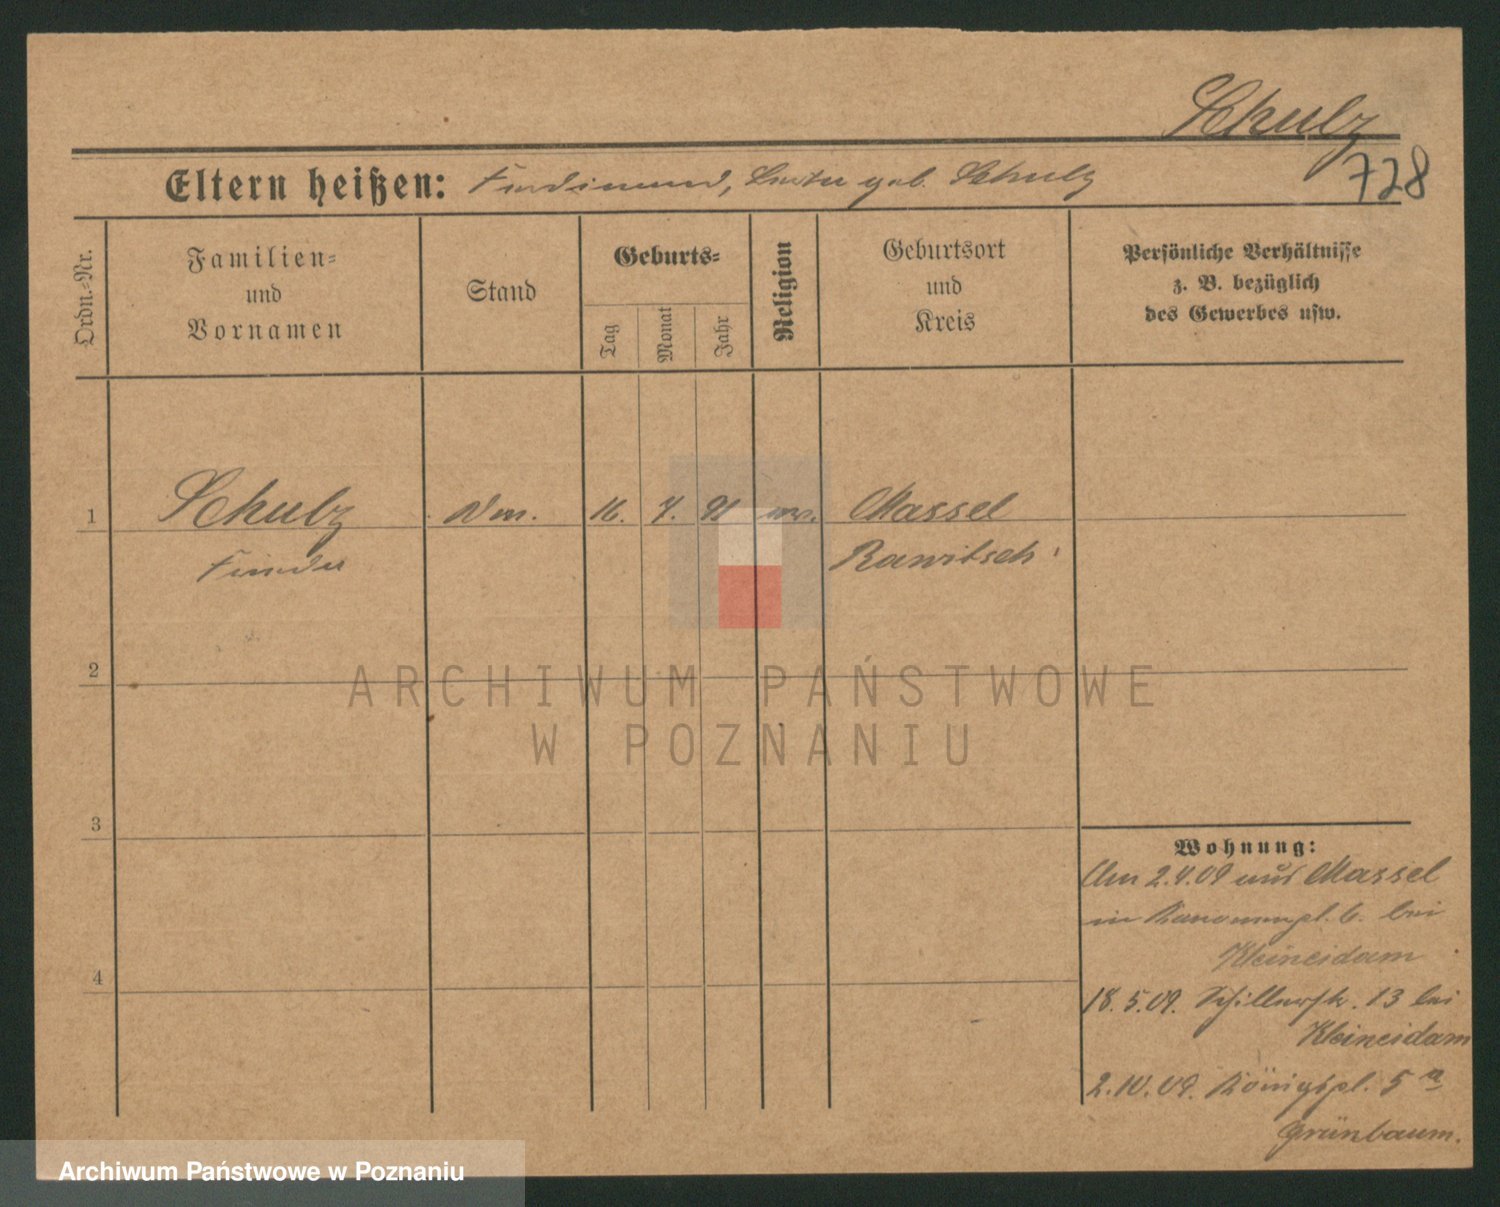 Schulz
728
Eltern heißen: Ferdinand, geb. Schulz
Ordn.-Nr.
Familien-
und
Vornamen
Stand
Geburts-
Tag
Monat
Jahr
Religion
Geburtsort
und
Kreis
Persönliche Verhältnisse
z. B. bezüglich
des Gewerbes usw.
1 Schulz 16. 4. 91 Massel
Rawitsch
2
3
4
ARCHIWUM PAŃSTWOWE
W POZNANIU
Wohnung:
Am 2.4.09 aus Massel
in Kanonenpl. 6. bei
Kleineidam
18.5.09. Schillerstr. 13 bei
Kleineidam
2.10.09. Königspl. 5 a
Grünbaum.
Archiwum Państwowe w Poznaniu